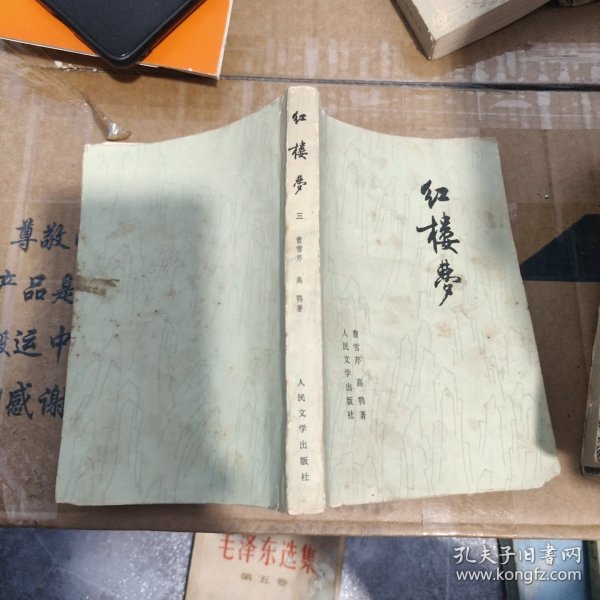 红楼梦
三
曹雪芹 高鹗著
人民文学出版社
红楼梦
曹雪芹 高鹗著
人民文学出版社
尊敬
产品是
运中
感谢
毛泽东选集
第五卷
孔夫子旧书网
www.kongfz.com